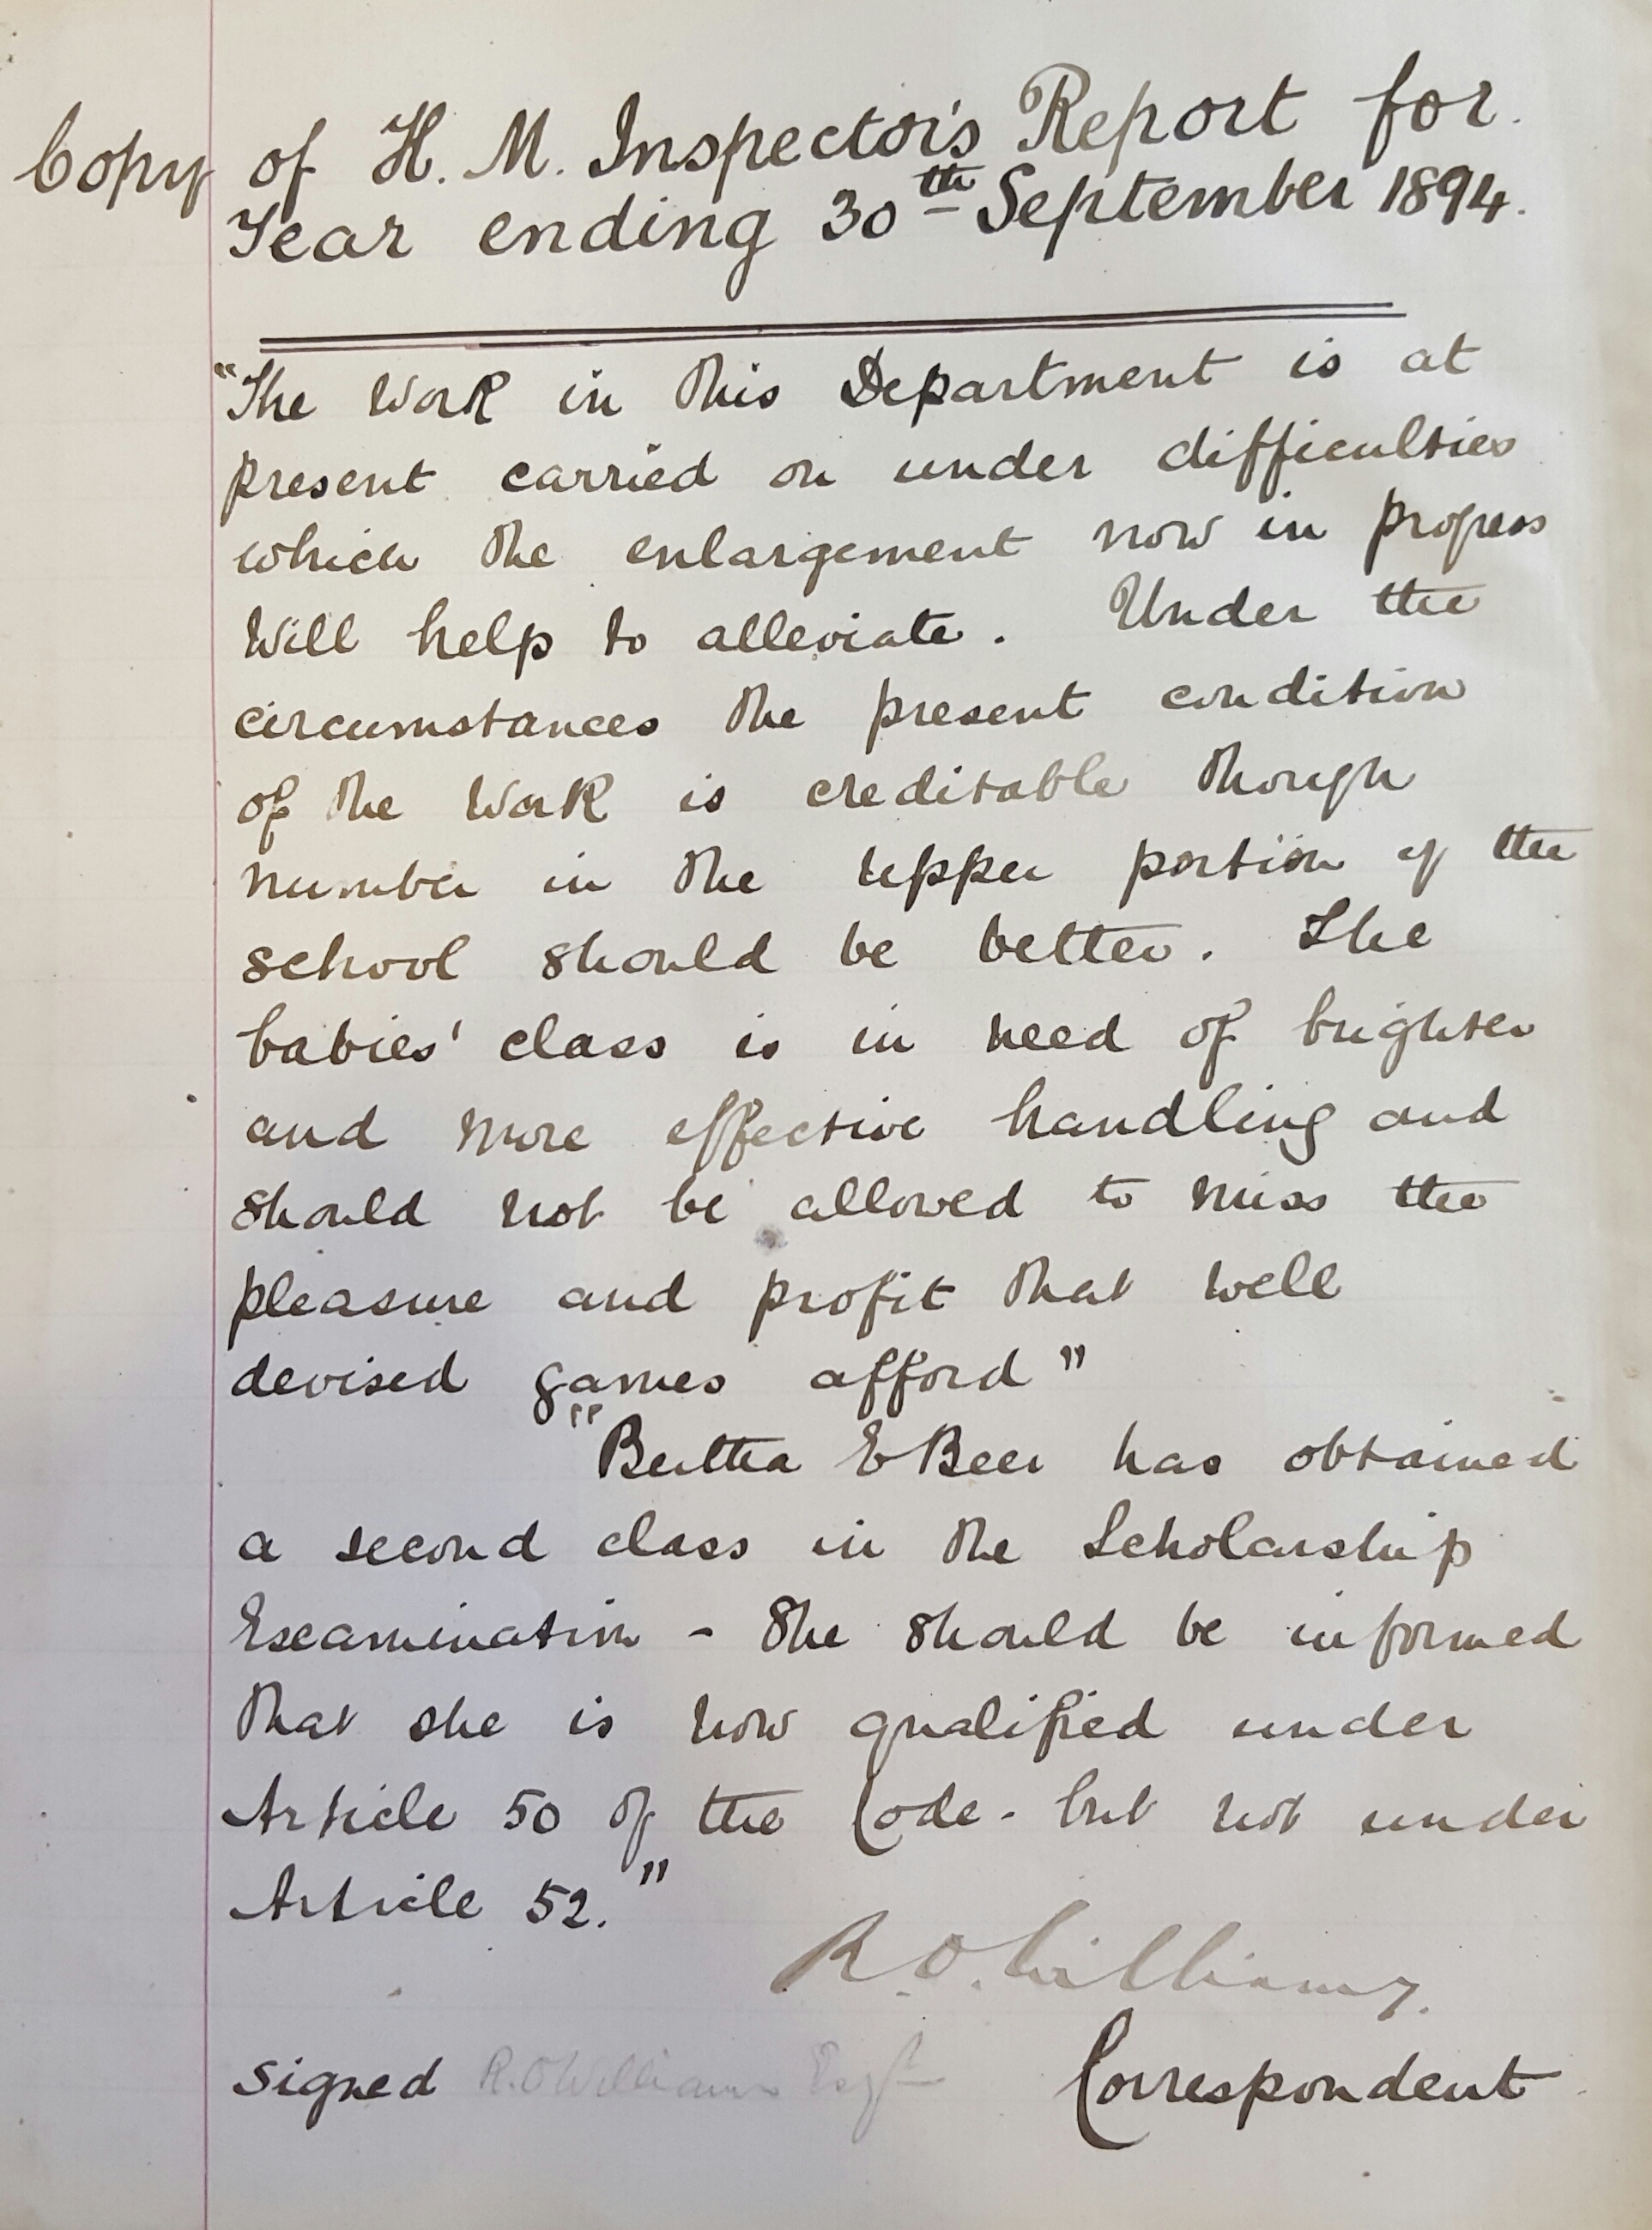 Copy of H. M. Inspector's Report for
Year ending 30th September 1894.
"The Work in this Department is at
present carried on under difficulties
which the enlargement now in progress
will help to alleviate. Under the
circumstances the present condition
of the Work is creditable though
number in the upper portion of the
school should be better. The
babies' class is in need of brighter
and more effective handling and
should not be allowed to miss the
pleasure and profit that well
devised games afford"
"Bertha E Beer has obtained
a second class in the Scholarship
Examination - She should be informed
that she is now qualified under
Article 50 of the Code - but not under
Article 52."
R. O. Williams.
Signed R. O Williams Esqre Correspondent